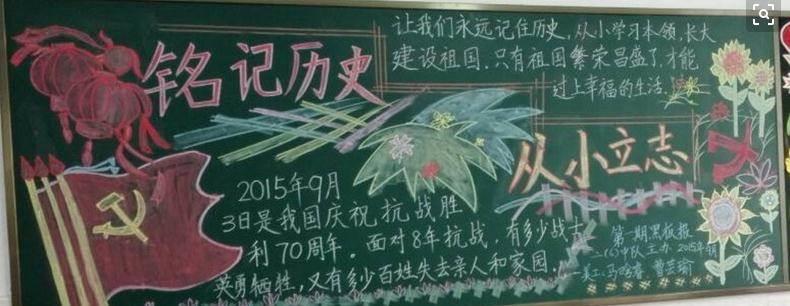 铭记历史
让我们永远记住历史,从小学习本领,长大
建设祖国,只有祖国繁荣昌盛了,才能
过上幸福的生活.
从小立志
2015年9月
3日是我国庆祝抗战胜
利70周年。面对8年抗战,有多少战士
英勇牺牲,又有多少百姓失去亲人和家园.
第一期黑板报
中队主办 2015年9月
美工:马